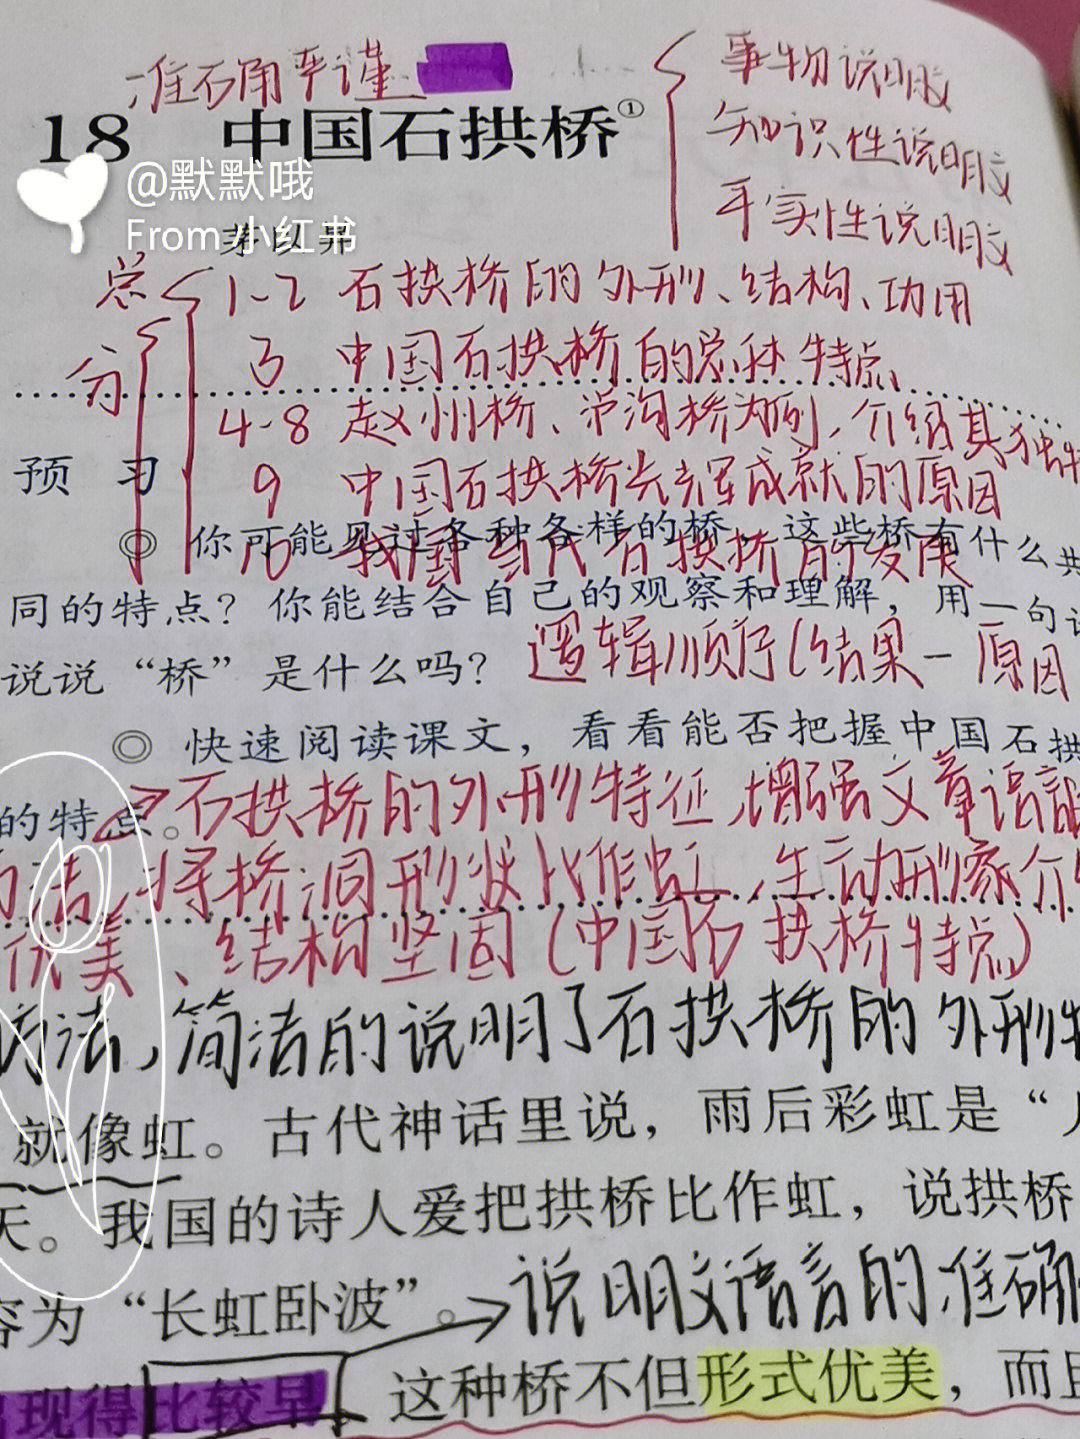 准确 严谨
事物说明文
18 中国石拱桥①
知识性说明文
@默默哦
平实性说明文
From 小红书
茅以昇
总 1-2 石拱桥的外形、结构、功用
分 3 中国石拱桥的总体特点
4-8 赵州桥、卢沟桥为例,介绍其独特
预 习 9 中国石拱桥光辉成就的原因
◎ 你可能见过各种各样的桥,这些桥有什么共
10 我国当代石拱桥的发展
同的特点?你能结合自己的观察和理解,用一句话
说说“桥”是什么吗? 逻辑顺序(结果-原因
◎ 快速阅读课文,看看能否把握中国石拱
的特点。→石拱桥的外形特征,增强文章语言
将桥洞形状比作虹,生动形象介
优美、结构坚固(中国石拱桥特点)
方法,简洁的说明了石拱桥的外形特
就像虹。古代神话里说,雨后彩虹是“人
天。我国的诗人爱把拱桥比作虹,说拱桥
容为“长虹卧波”。→说明文语言的准确
出现得比较早。这种桥不但形式优美,而且